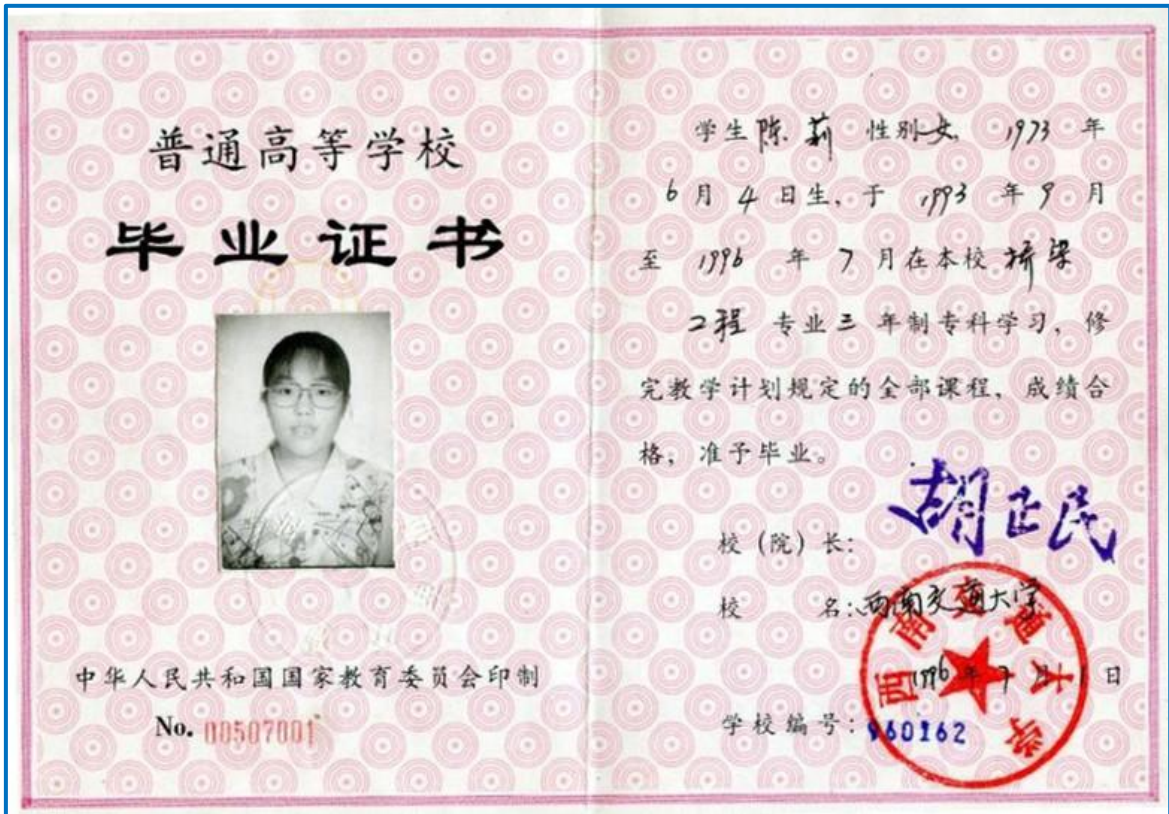 普通高等学校
毕业证书
中华人民共和国国家教育委员会印制
No. 00507001
学生陈莉 性别女, 1973 年
6 月 4 日生, 于 1993 年 9 月
至 1996 年 7 月在本校 桥梁
工程 专业 三 年制专科学习, 修
完教学计划规定的全部课程, 成绩合
格, 准予毕业。
校（院）长: 胡正民
校 名: 西南交通大学
西南交通大学
1996 年 7 月 1 日
学校编号: 960162